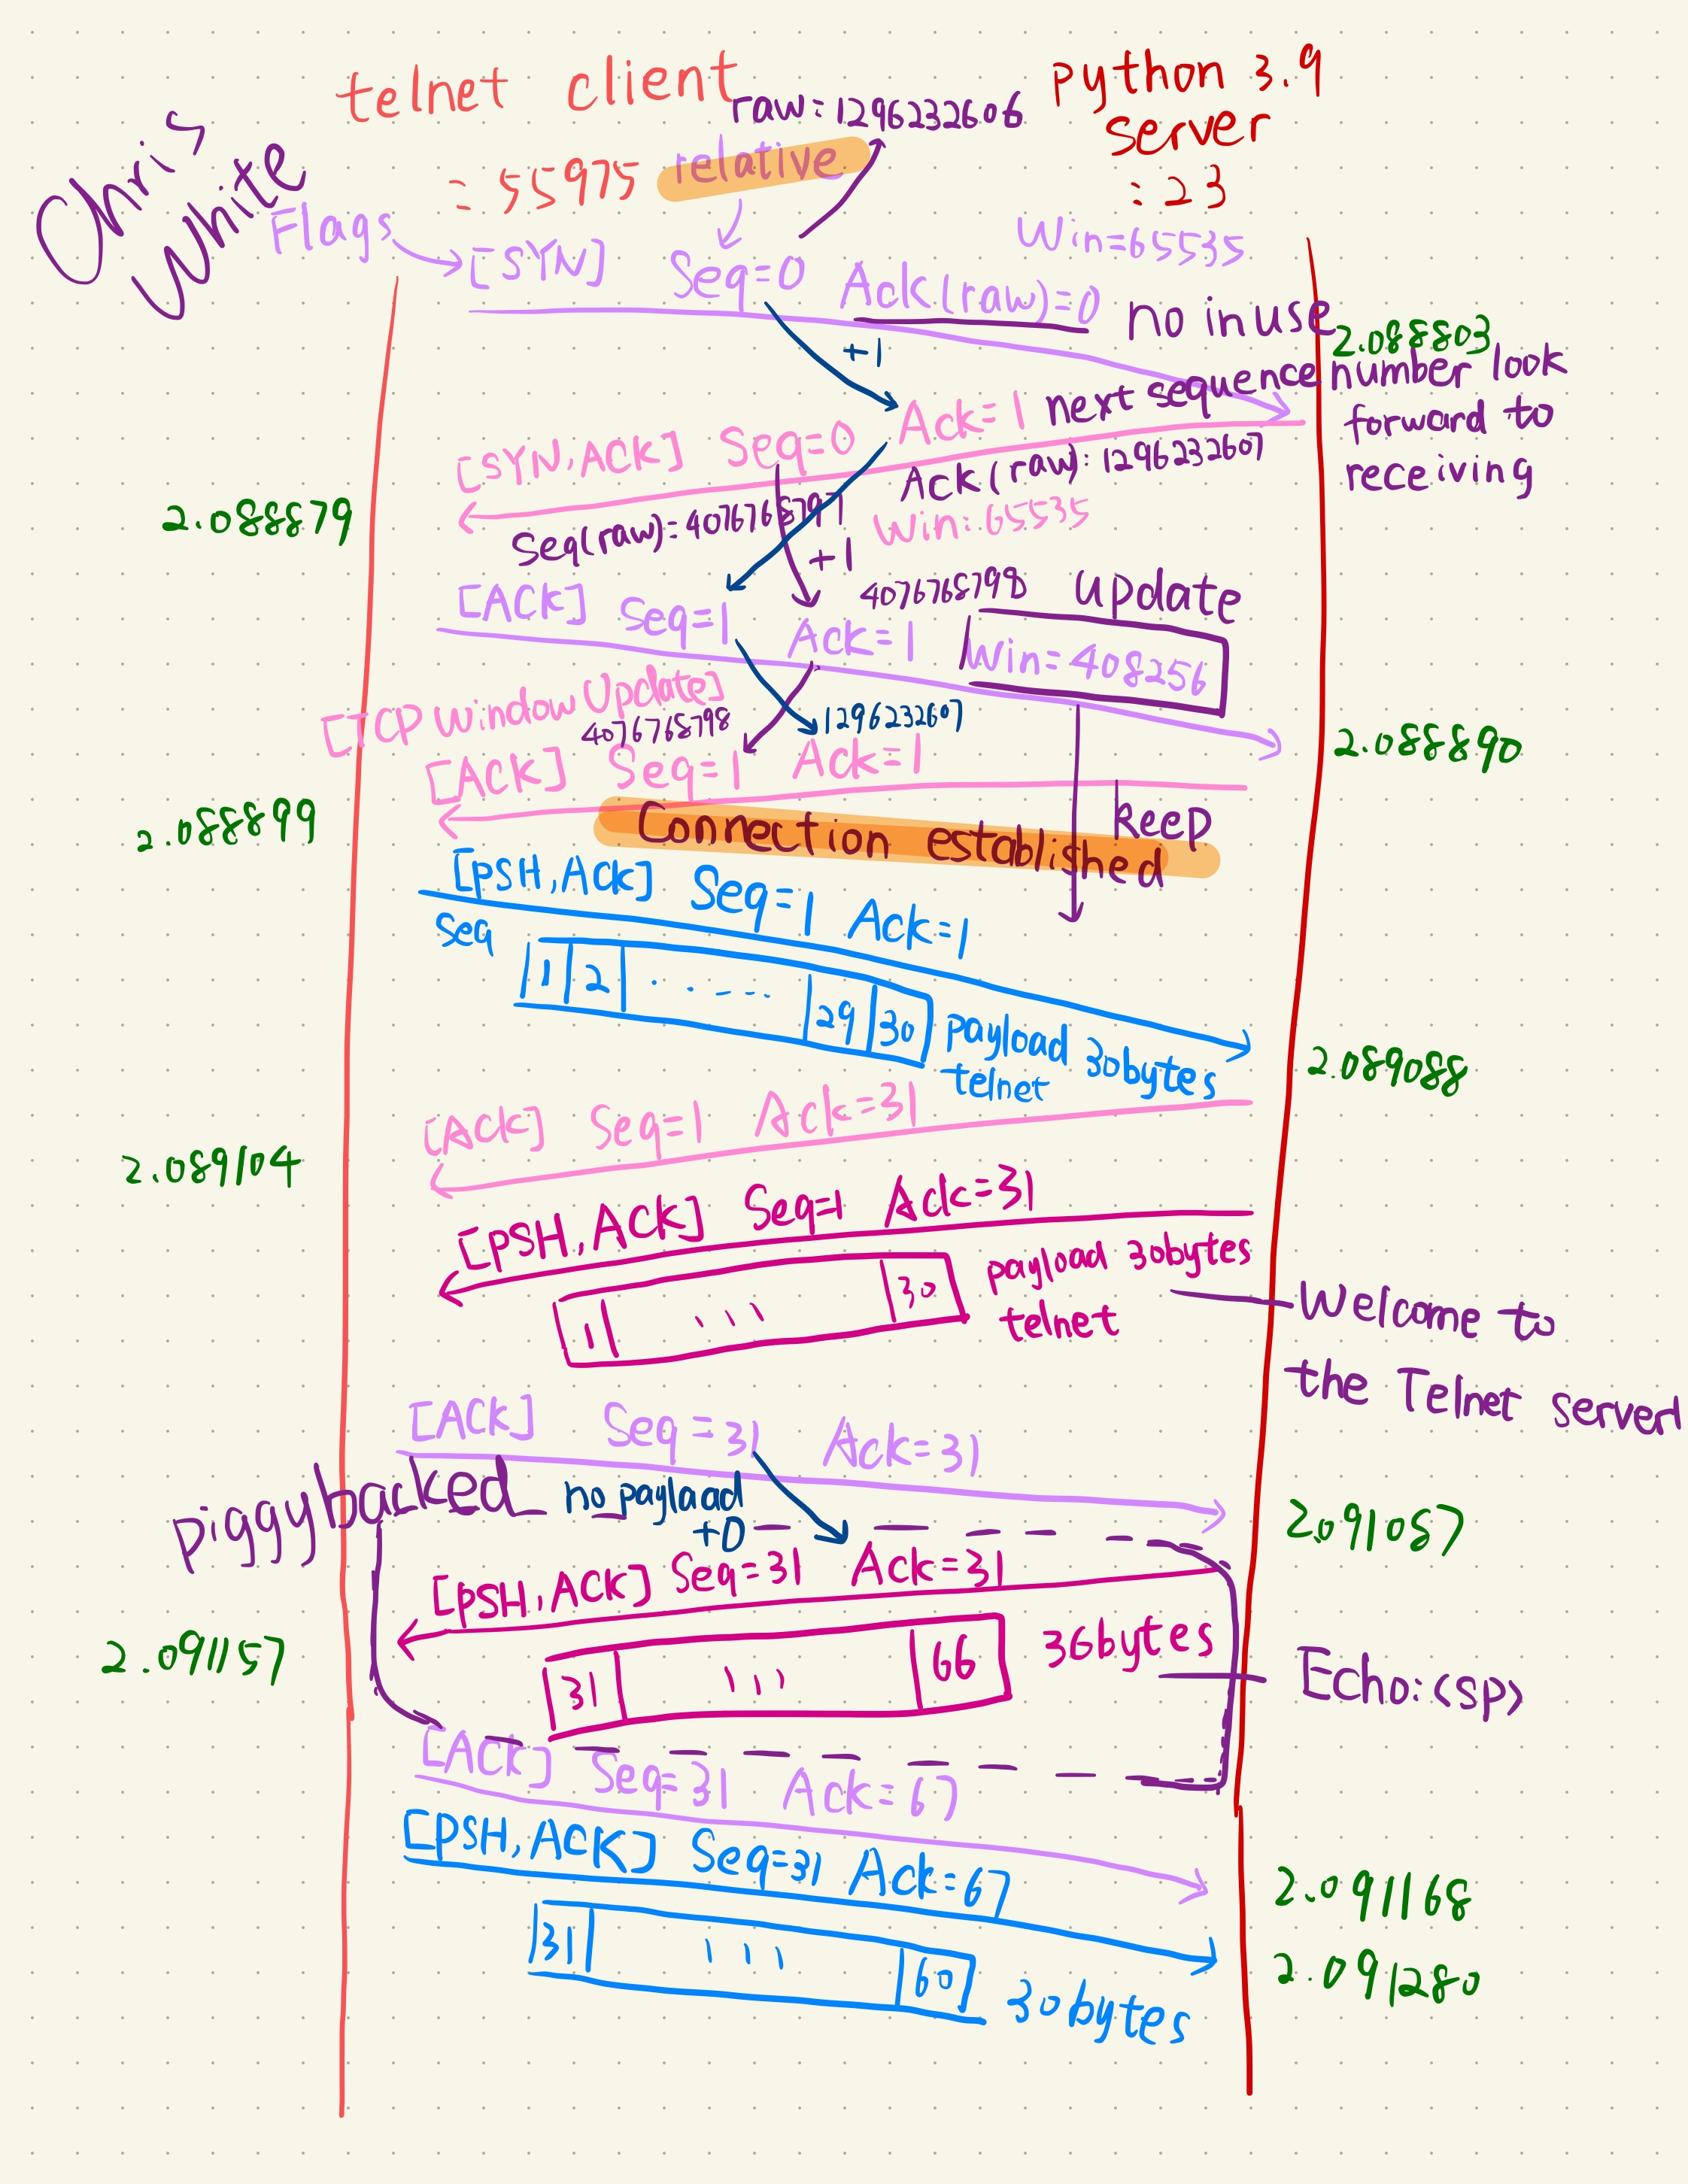 Chris
White
telnet client
:55975
python 3.9
server
:23
raw:1296232606
relative
Flags
[SYN] Seq=0 Ack(raw)=0 no inuse
Win=65535
2.088803
+1
[SYN,ACK] Seq=0 Ack=1 next sequence number look
forward to
receiving
Ack(raw):1296232607
Seq(raw)=4076768797
Win:65535
2.088879
+1
4076768798 update
[ACK] Seq=1 Ack=1 Win=408256
2.088890
[TCP Window Update]
4076768798 1296232607
[ACK] Seq=1 Ack=1
2.088899
keep
Connection established
[PSH,ACK] Seq=1 Ack=1
Seq
1 2 ..--- 29 30
payload 30bytes
telnet
2.089088
[ACK] Seq=1 Ack=31
2.089104
[PSH,ACK] Seq=1 Ack=31
1 ... 30
payload 30bytes
telnet
Welcome to
the Telnet server!
[ACK] Seq=31 Ack=31
2.091057
piggybacked
no paylaad
+0
[PSH,ACK] Seq=31 Ack=31
2.091157
31 ... 66
36bytes
Echo:<sp>
[ACK] Seq=31 Ack=67
2.091168
[PSH,ACK] Seq=31 Ack=67
2.091280
31 ... 60
30bytes